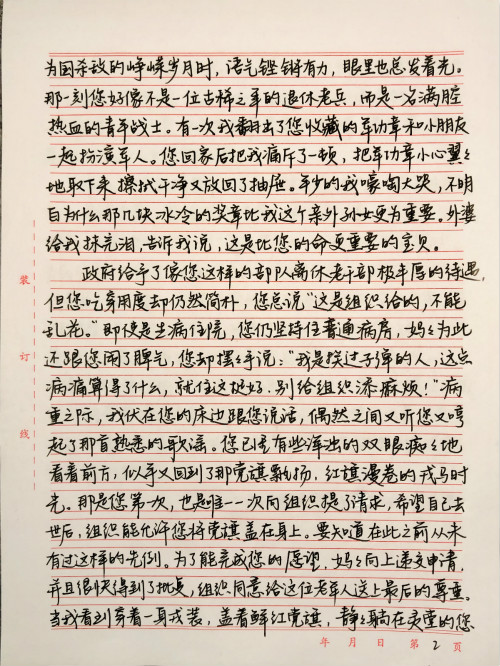 为国杀敌的峥嵘岁月时，语气铿锵有力，眼里也总发着光。
那一刻您好像不是一位古稀之年的退休老兵，而是一名满腔
热血的青年战士。有一次我翻出了您收藏的军功章和小朋友
一起扮演军人。您回家后把我痛斥了一顿，把军功章小心翼々
地取下来擦拭干净又放回了抽屉。年少的我嚎啕大哭，不明
白为什么那几块冰冷的奖章比我这个亲外孙女更为重要。外婆
给我抹完泪，告诉我说，这是比您的命更重要的宝贝。
政府给予了像您这样的部队离休老干部极丰厚的待遇，
但您吃穿用度却仍然简朴，您总说“这是组织给的，不能
乱花。”即使是生病住院，您仍坚持住普通病房，妈々为此
还跟您闹了脾气，您却摆々手说：“我是挨过子弹的人，这点
病痛算得了什么，就住这挺好。别给组织添麻烦！”病
重之际，我伏在您的床边跟您说话，偶然之间又听您又哼
起了那首熟悉的歌谣。您已经有些浑浊的双眼痴々地
看着前方，似乎又回到了那党旗飘扬，红旗漫卷的戎马时
光。那是您第一次，也是唯一一次向组织提了请求，希望自己去
世后，组织能允许您将党旗盖在身上。要知道在此之前从未
有过这样的先例。为了能完成您的愿望，妈々向上递交申请，
并且很快得到了批复，组织同意给这位老军人送上最后的尊重。
当我看到穿着一身戎装，盖着鲜红党旗，静々躺在灵堂的您
装
订
线
年 月 日 第 2 页